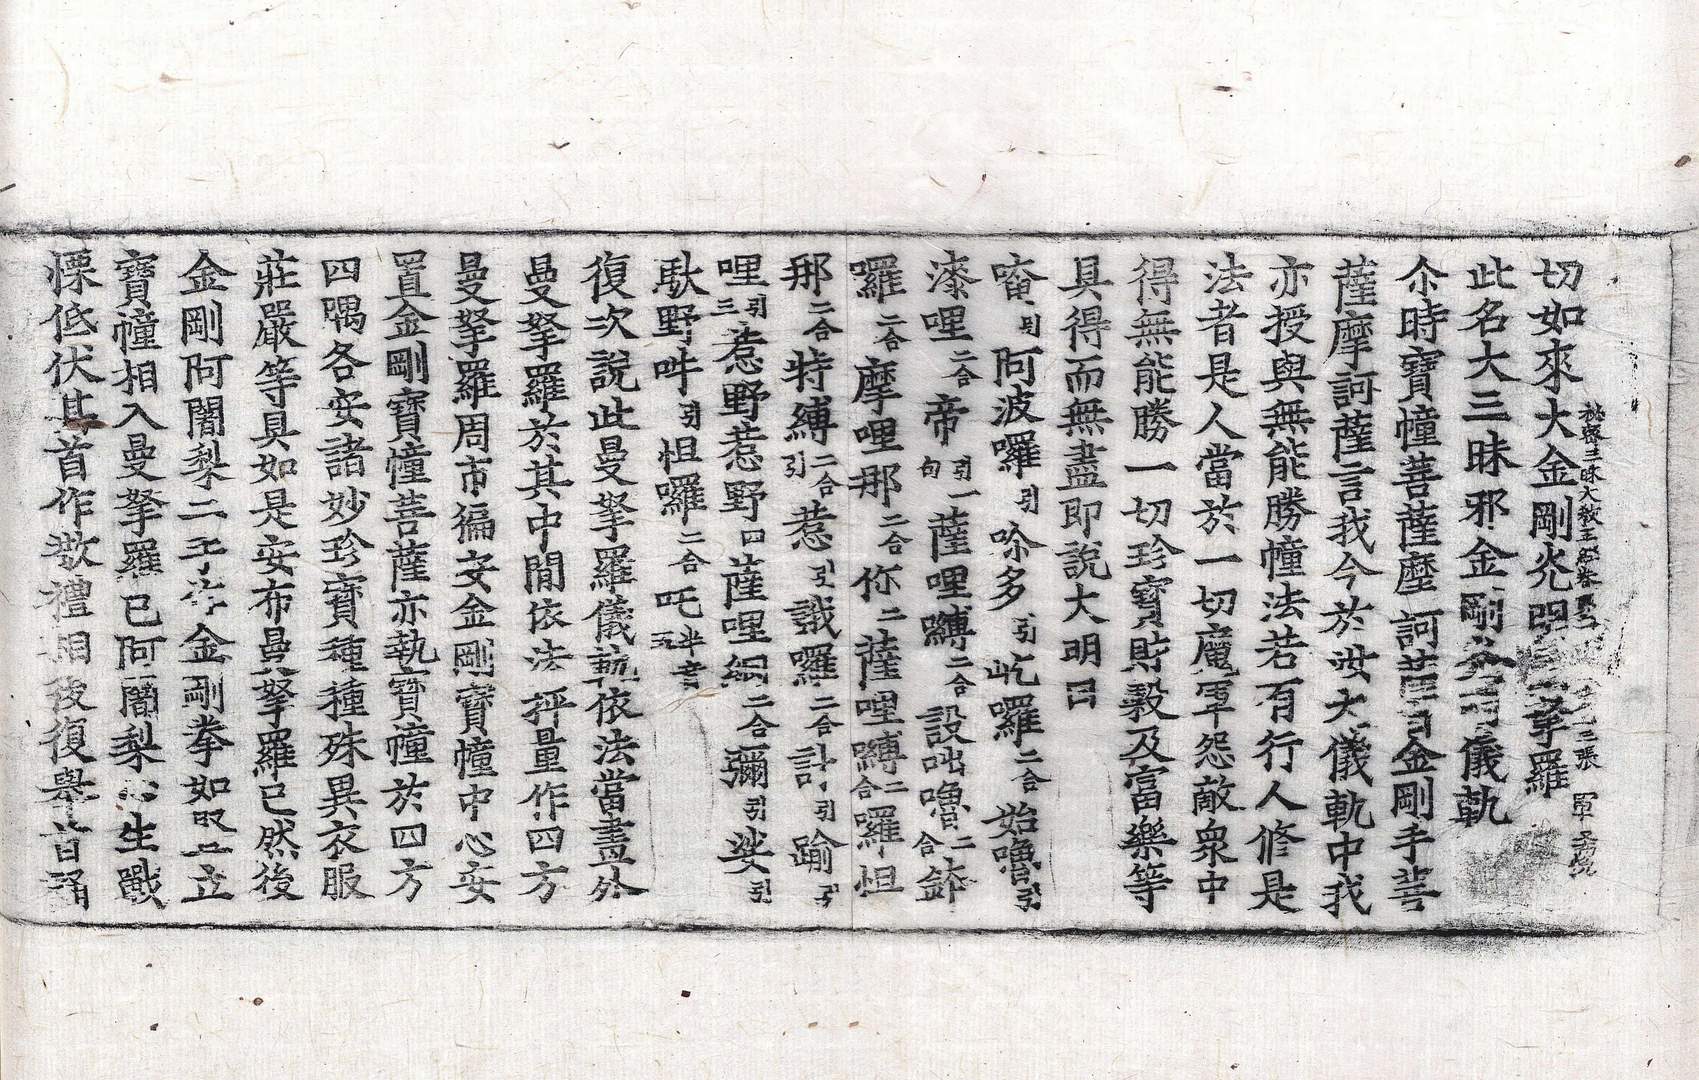 切如來大金剛光明曼拏羅
秘密三昧大教王經卷第 三張
此名大三昧邪金剛 儀軌
尒時寶幢菩薩摩訶薩 白金剛手菩
薩摩訶薩言我今於汝大儀軌中我
亦授與無能勝幢法若有行人修是
法者是人當於一切魔軍怨敵衆中
得無能勝一切珍寶財穀及富樂等
具得而無盡即說大明曰
唵引阿波囉引唅多引屹囉二合始嚕引
漆哩二合帝引句一薩哩嚩二合設咄嚕二合鉢
囉二合摩哩那二合你二薩哩嚩二合囉怛
那二合特縛二合引惹引誐囉二合計引踰引
哩引三惹野惹野四薩哩網二合彌引娑引
馱野吽引怛囉二合吒半音五
復次說此曼拏羅儀軌依法當畫外
曼拏羅於其中間依法秤量作四方
曼拏羅周帀徧安金剛寶幢中心安
置金剛寶幢菩薩亦執寶幢於四方
四隅各安諸妙珍寶種種殊異衣服
莊嚴等具如是安布曼拏羅已然後
金剛阿闍梨二手作金剛拳如 立
寶幢相入曼拏羅已阿闍梨心生戰
慄低伏其首作敬禮相後復舉首誦